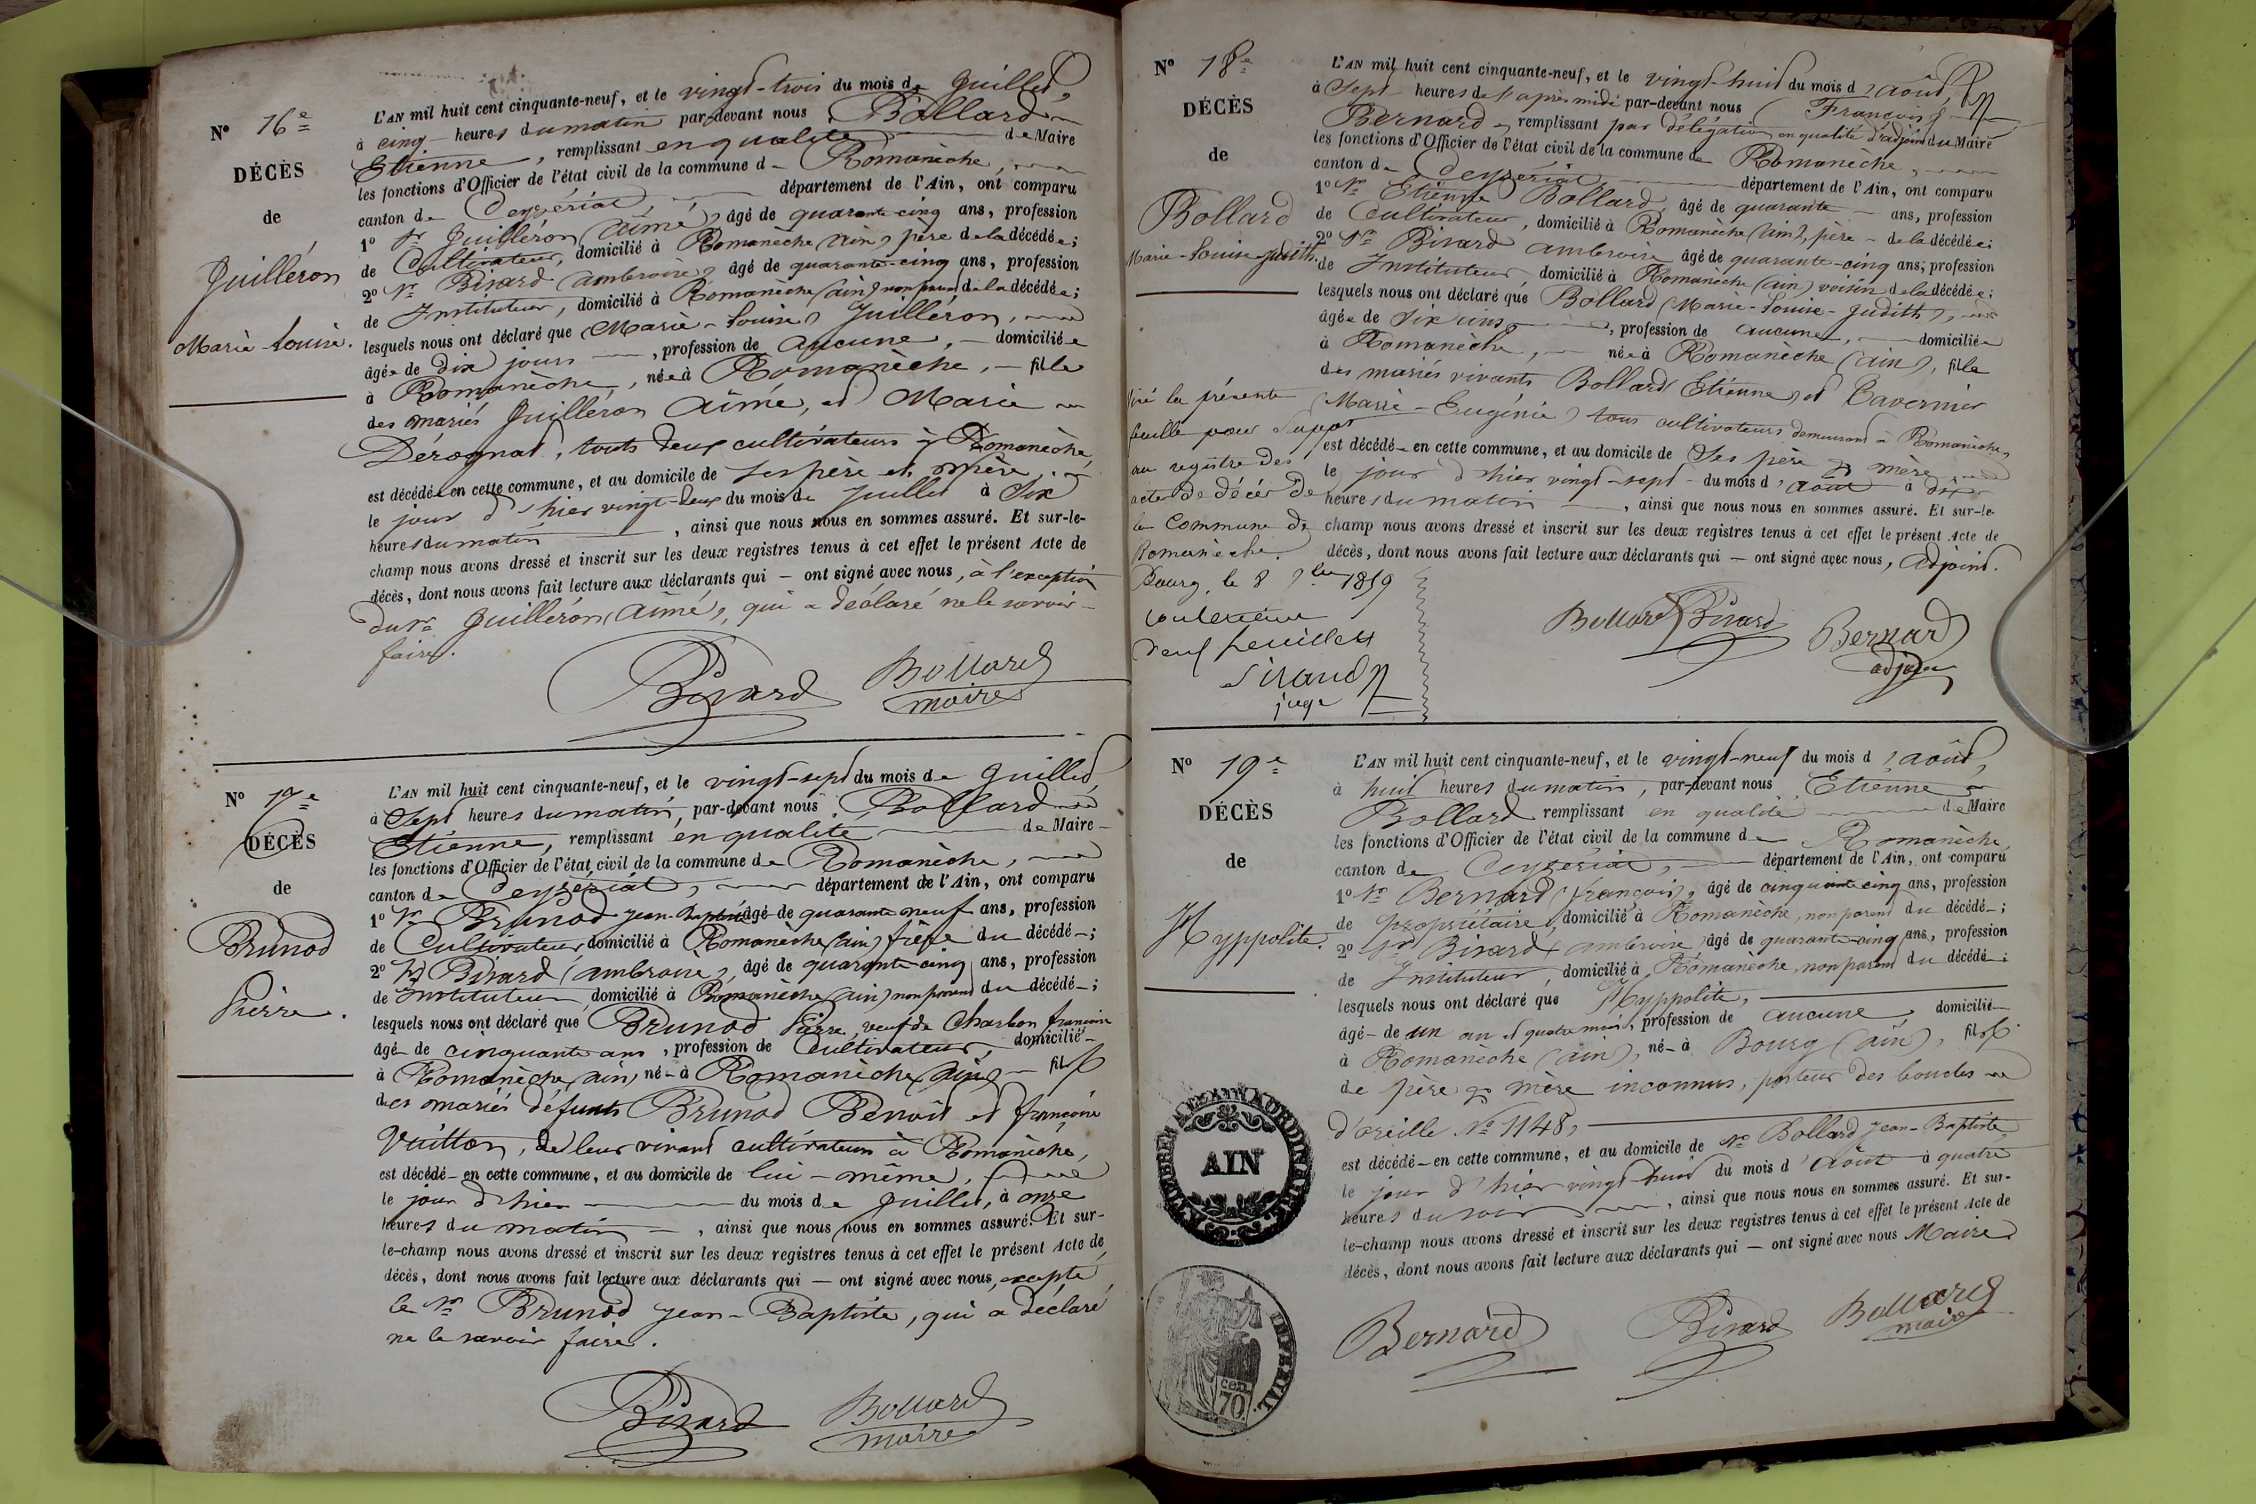 N° 16e
DÉCÈS
de
Juilléron
Marie-Louise.
L'AN mil huit cent cinquante-neuf, et le vingt-trois du mois de Juillet,
à cinq heures du matin par-devant nous Bollard
Etienne, remplissant en qualité de Maire
les fonctions d'Officier de l'état civil de la commune de Romanèche,
canton de Ceyzériat, département de l'Ain, ont comparu
1° Sr Juilléron (Aimé) âgé de quarante-cinq ans, profession
de Cultivateur, domicilié à Romanèche (Ain) père de la décédée;
2° Sr Bivard (Ambroise) âgé de quarante-cinq ans, profession
de Instituteur, domicilié à Romanèche (Ain) non parent de la décédée;
lesquels nous ont déclaré que (Marie-Louise) Juilléron,
âgée de dix jours, profession de aucune, domiciliée
à Romanèche, née à Romanèche, fille
des mariés Juilléron Aimé, et Marie
Dérognat, touts deux cultivateurs à Romanèche,
est décédée en cette commune, et au domicile de ses père et mère,
le jour d'hier vingt-deux du mois de Juillet à six
heures du matin, ainsi que nous nous en sommes assuré. Et sur-le-
champ nous avons dressé et inscrit sur les deux registres tenus à cet effet le présent Acte de
décès, dont nous avons fait lecture aux déclarants qui — ont signé avec nous, à l'exception
du Sr Juilléron (Aimé), qui a déclaré ne le savoir
faire.
Bivard Bollard
maire
N° 17e
DÉCÈS
de
Brunod
Pierre.
L'AN mil huit cent cinquante-neuf, et le vingt-sept du mois de Juillet,
à Sept heures du matin, par-devant nous Bollard
Etienne, remplissant en qualité de Maire
les fonctions d'Officier de l'état civil de la commune de Romanèche,
canton de Ceyzériat, département de l'Ain, ont comparu
1° Sr Brunod Jean-Baptiste âgé de quarante neuf ans, profession
de Cultivateur, domicilié à Romanèche (Ain) frère du décédé;
2° Sr Bivard (Ambroise), âgé de quarante-cinq ans, profession
de Instituteur domicilié à Romanèche (Ain) non parent du décédé;
lesquels nous ont déclaré que Brunod Pierre, veuf de Charbon françoise
âgé de cinquante ans, profession de Cultivateur, domicilié
à Romanèche (Ain) né à Romanèche (Ain) fils
des mariés défunts Brunod Benoît et françoise
Vuitton, de leur vivant cultivateurs à Romanèche,
est décédé en cette commune, et au domicile de lui-même,
le jour d'hier du mois de Juillet, à onze
heures du matin, ainsi que nous nous en sommes assuré. Et sur-
le-champ nous avons dressé et inscrit sur les deux registres tenus à cet effet le présent Acte de
décès, dont nous avons fait lecture aux déclarants qui — ont signé avec nous, excepté
le Sr Brunod Jean-Baptiste, qui a déclaré
ne le savoir faire.
Bivard Bollard
maire
N° 18e
DÉCÈS
de
Bollard
Marie-Louise-Judith.
L'AN mil huit cent cinquante-neuf, et le vingt-huit du mois d'Août,
à Sept heures de l'après midi par-devant nous (François)
Bernard, remplissant par délégation en qualité d'adjoint du Maire
les fonctions d'Officier de l'état civil de la commune de Romanèche,
canton de Ceyzériat département de l'Ain, ont comparu
1° Sr Etienne Bollard, âgé de quarante ans, profession
de Cultivateur, domicilié à Romanèche (Ain), père de la décédée;
2° Sr Bivard Ambroise âgé de quarante-cinq ans, profession
de Instituteur domicilié à Romanèche (Ain) voisin de la décédée;
lesquels nous ont déclaré que Bollard (Marie-Louise-Judith),
âgée de six ans, profession de aucune, domiciliée
à Romanèche, née à Romanèche (Ain), fille
des mariés vivants Bollard (Etienne) et Tavernier
(Marie-Eugénie) tous cultivateurs demeurant à Romanèche,
est décédée en cette commune, et au domicile de ses père & mère
le jour d'hier vingt-sept du mois d'Août à dix
heures du matin, ainsi que nous nous en sommes assuré. Et sur-le-
champ nous avons dressé et inscrit sur les deux registres tenus à cet effet le présent Acte de
décès, dont nous avons fait lecture aux déclarants qui — ont signé avec nous, Adjoint.
la présente
feuille pour
au registre des
actes de décès de
la Commune de
Romanèche.
Bourg, le 8 1859
contenant
neuf feuillets
Sirand
juge
Bollard Bivard Bernard
adjoint
N° 19e
DÉCÈS
de
Hyppolite.
L'AN mil huit cent cinquante-neuf, et le vingt-neuf du mois d'Août,
à huit heures du matin, par-devant nous Etienne
Bollard remplissant en qualité de Maire
les fonctions d'Officier de l'état civil de la commune de Romanèche,
canton de Ceyzériat, département de l'Ain, ont comparu
1° Sr Bernard (françois), âgé de cinquante cinq ans, profession
de propriétaire, domicilié à Romanèche, non parent du décédé;
2° Sr Bivard (Ambroise) âgé de quarante-cinq ans, profession
de Instituteur, domicilié à Romanèche, non parent du décédé;
lesquels nous ont déclaré que Hyppolite,
âgé de un an et quatre mois, profession de aucune, domicilié
à Romanèche (Ain), né à Bourg (Ain), fils
de père & mère inconnus, porteur des boucles
d'oreille N° 1148,
est décédé en cette commune, et au domicile de Sr Bollard Jean-Baptiste,
le jour d'hier vingt-huit du mois d'Août à quatre
heures du soir, ainsi que nous nous en sommes assuré. Et sur-
le-champ nous avons dressé et inscrit sur les deux registres tenus à cet effet le présent Acte de
décès, dont nous avons fait lecture aux déclarants qui — ont signé avec nous Maire
Bernard Bivard Bollard
maire
AIN
TIMBRE IMPERIAL
cen.
70